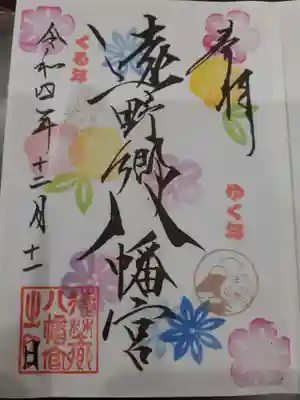 奉拝
ゆく年
遠野郷八幡宮
くる年
令和四年十二月十一日
遠野郷
八幡宮
之印